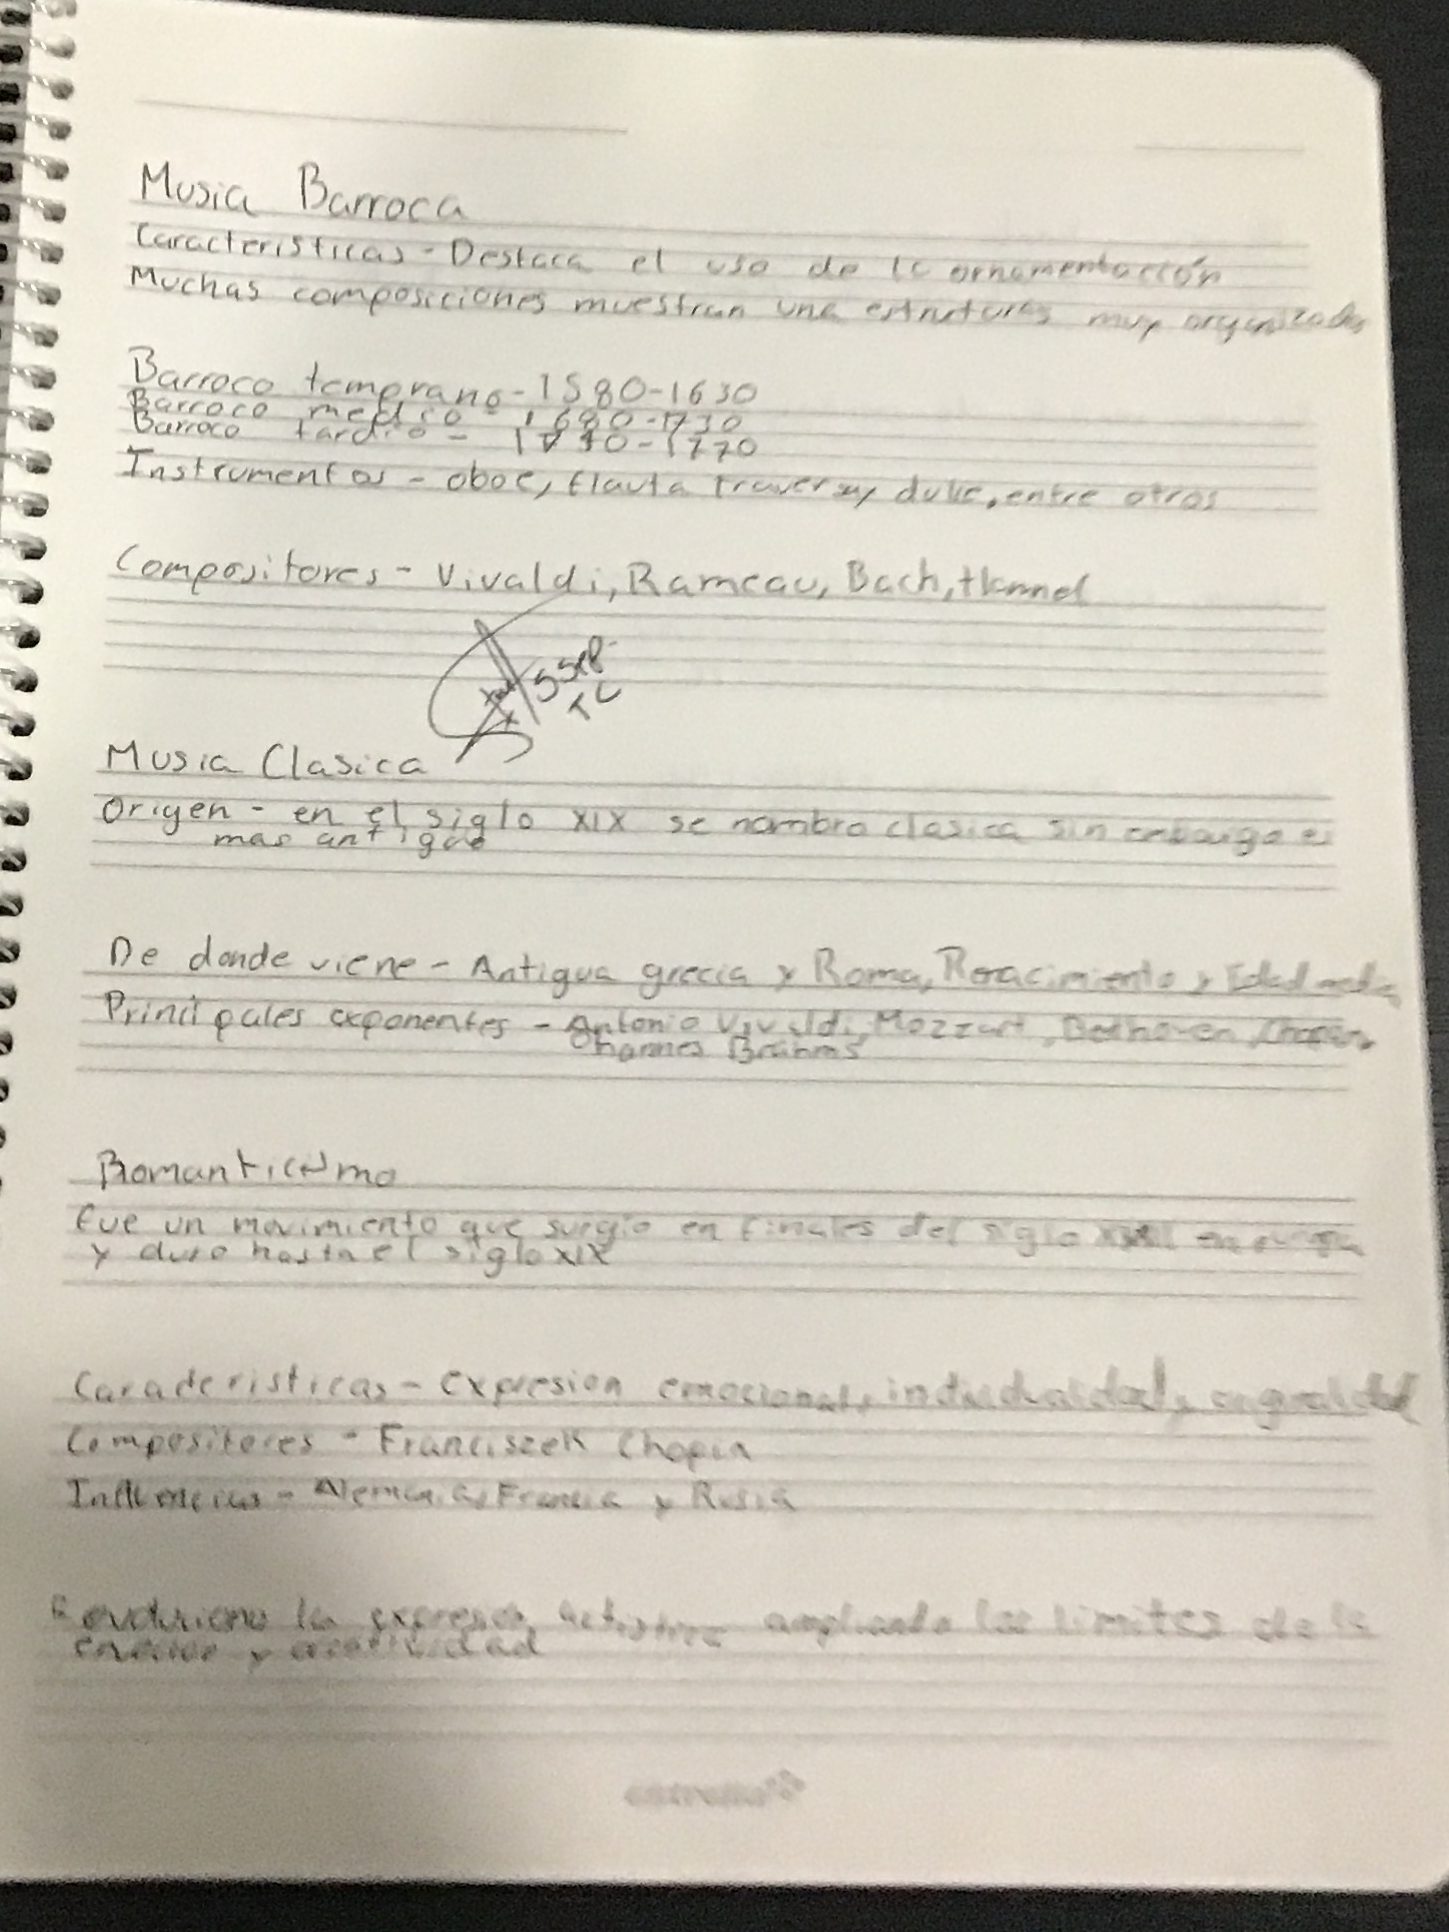 Musia Barroca
Caracteristicas - Destaca el uso de lc ornamentacción
Muchas composiciones muestran una estruturas muy organizadas
Barroco temprano - 1580-1630
Barroco medio - 1680-1730
Barroco tardio - 1730-1770
Instrumentos - oboe, flauta traversa, dulce, entre otros
Compositores - Vivaldi, Rameau, Bach, Hannel
5 Sep
TC
Musia Clasica
Origen - en el siglo XIX se nombro clasica sin embargo es
mas antiguo
De donde viene - Antigua grecia y Roma, Renacimiento y Edad media
Principales exponentes - Antonio Vivaldi, Mozzart, Bethoven, Chopin,
Ohannes Brahms
Romanticismo
Fue un movimiento que surgio en finales del siglo XVIII en europa
y duro hasta el siglo XIX
Caracteristicas - Expresion emocional, individualidad,
Compositores - Franciszek Chopin
Influencias - Alemania, Francia y Rusia
Revoluciono la expresion artistica ampliando los limites de la
y creatividad